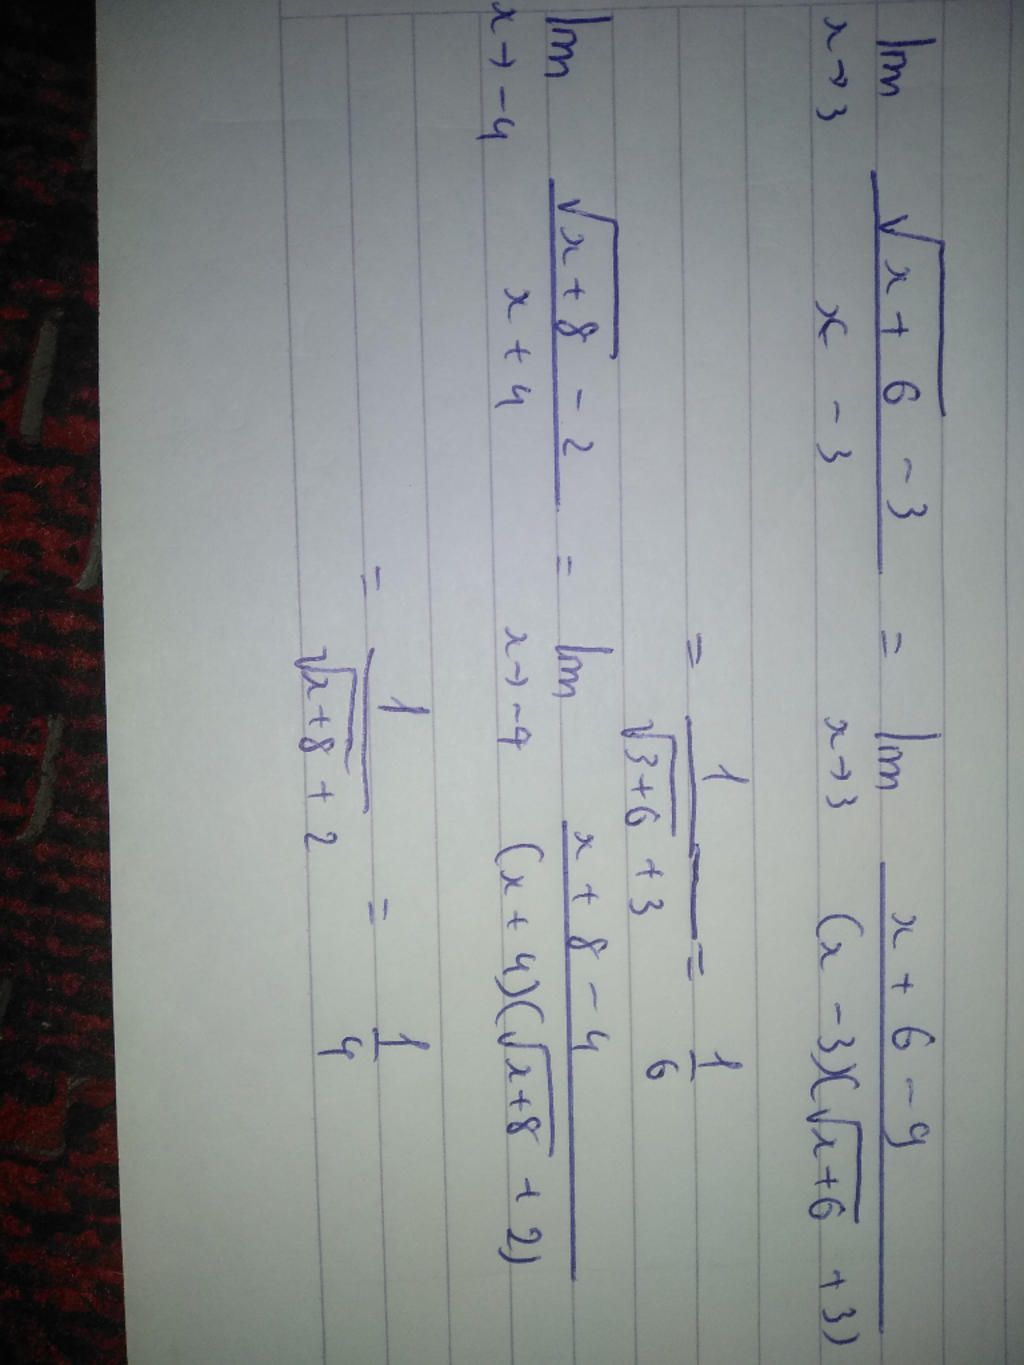 lim x→3 (√(x+6) - 3)/(x - 3) = lim x→3 (x + 6 - 9)/((x - 3)(√(x+6) + 3))
= 1/(√(3+6) + 3) = 1/6
lim x→-4 (√(x+8) - 2)/(x + 4) = lim x→-4 (x + 8 - 4)/((x + 4)(√(x+8) + 2))
= 1/(√(x+8) + 2) = 1/4